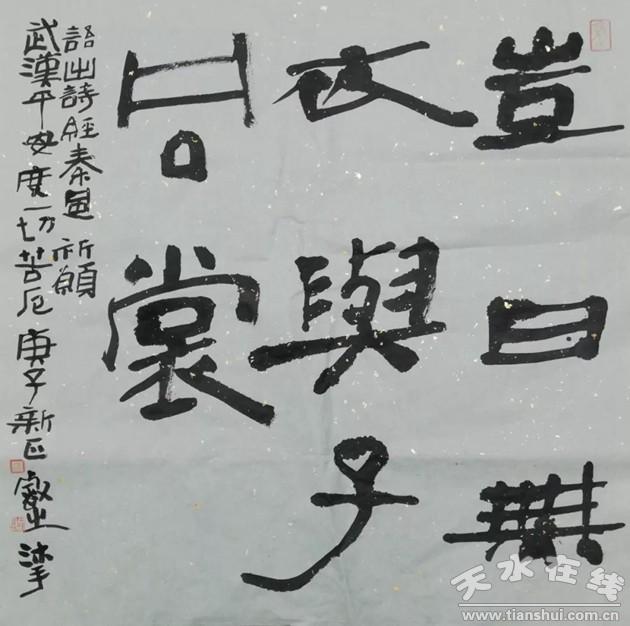 豈曰無
衣與子
同裳
語出詩經秦風 祈願
武漢平安 度一切苦厄 庚子新正 沐手
天水在线
www.tianshui.com.cn